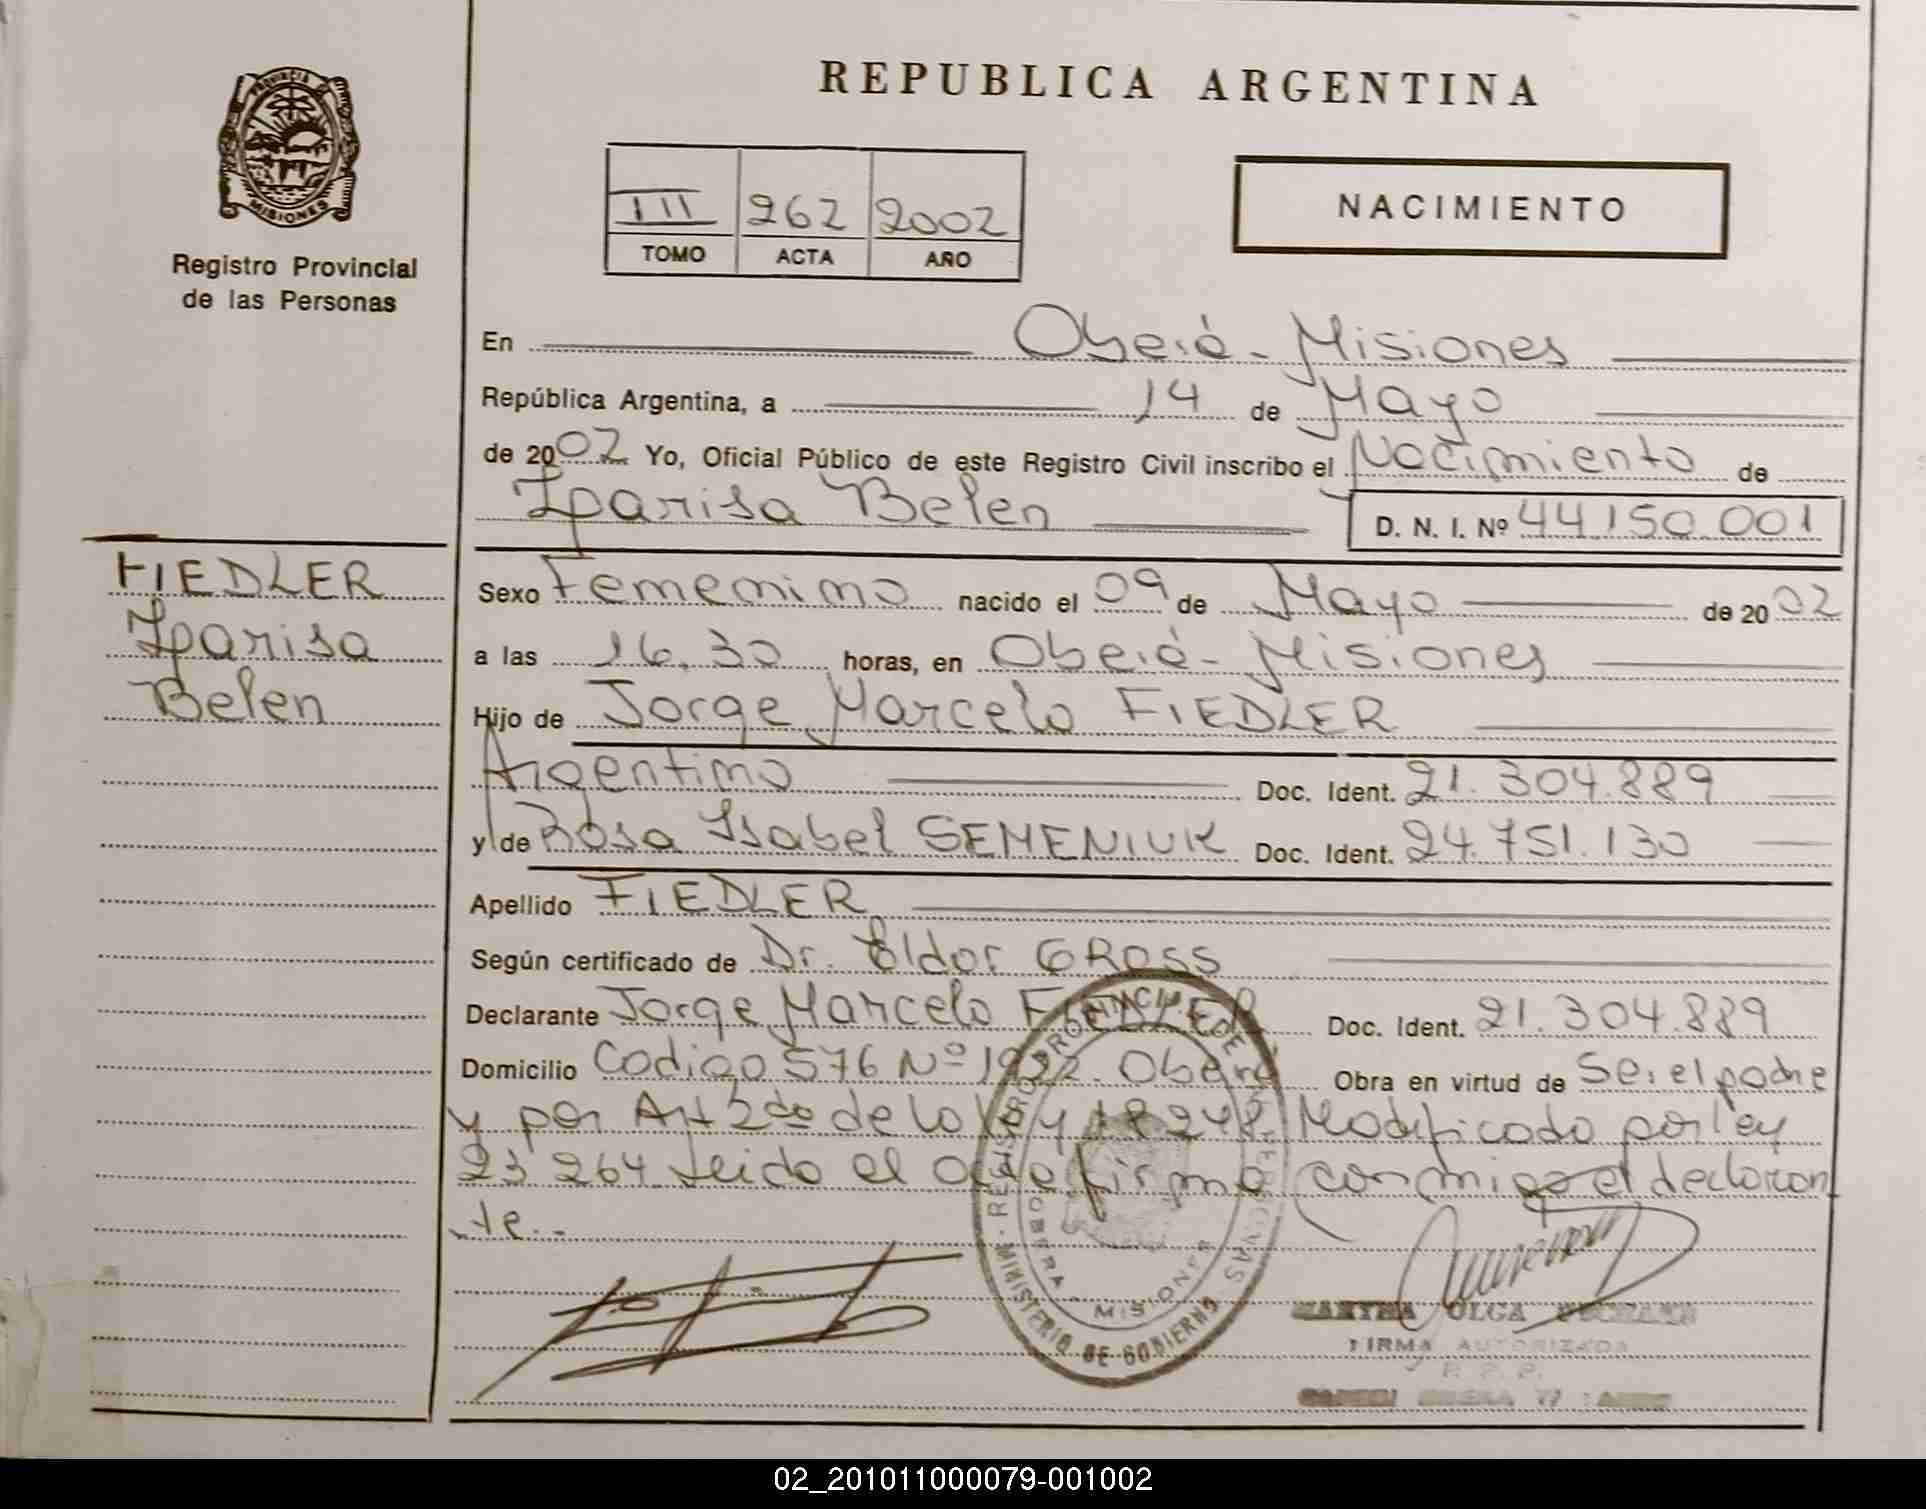 REPUBLICA ARGENTINA
PROVINCIA DE
MISIONES
Registro Provincial
de las Personas
III 262 2002
TOMO ACTA AÑO
NACIMIENTO
En Oberá - Misiones
República Argentina, a 14 de Mayo
de 2002 Yo, Oficial Público de este Registro Civil inscribo el Nacimiento de
Larisa Belen D. N. I. Nº 44.150.001
FIEDLER
Larisa
Belen
Sexo Femenino nacido el 09 de Mayo de 2002
a las 16,30 horas, en Oberá - Misiones
Hijo de Jorge Marcelo FIEDLER
Argentino Doc. Ident. 21.304.889
y de Rosa Isabel SEMENIUK Doc. Ident. 24.751.130
Apellido FIEDLER
Según certificado de Dr. Eldor GROSS
Declarante Jorge Marcelo FIEDLER Doc. Ident. 21.304.889
Domicilio Codigo 576 Nº 1922. Oberá Obra en virtud de Ser el padre
y por Art 2do de la Ley 18248. Modificado por ley
23 264 Leido el acta firma conmigo el declaran
te..
REGISTRO PROVINCIAL DE LAS PERSONAS
MINISTERIO DE GOBIERNO
OBERA - MISIONES
MARTHA OLGA
FIRMA AUTORIZADA
R. P. P.
02_201011000079-001002